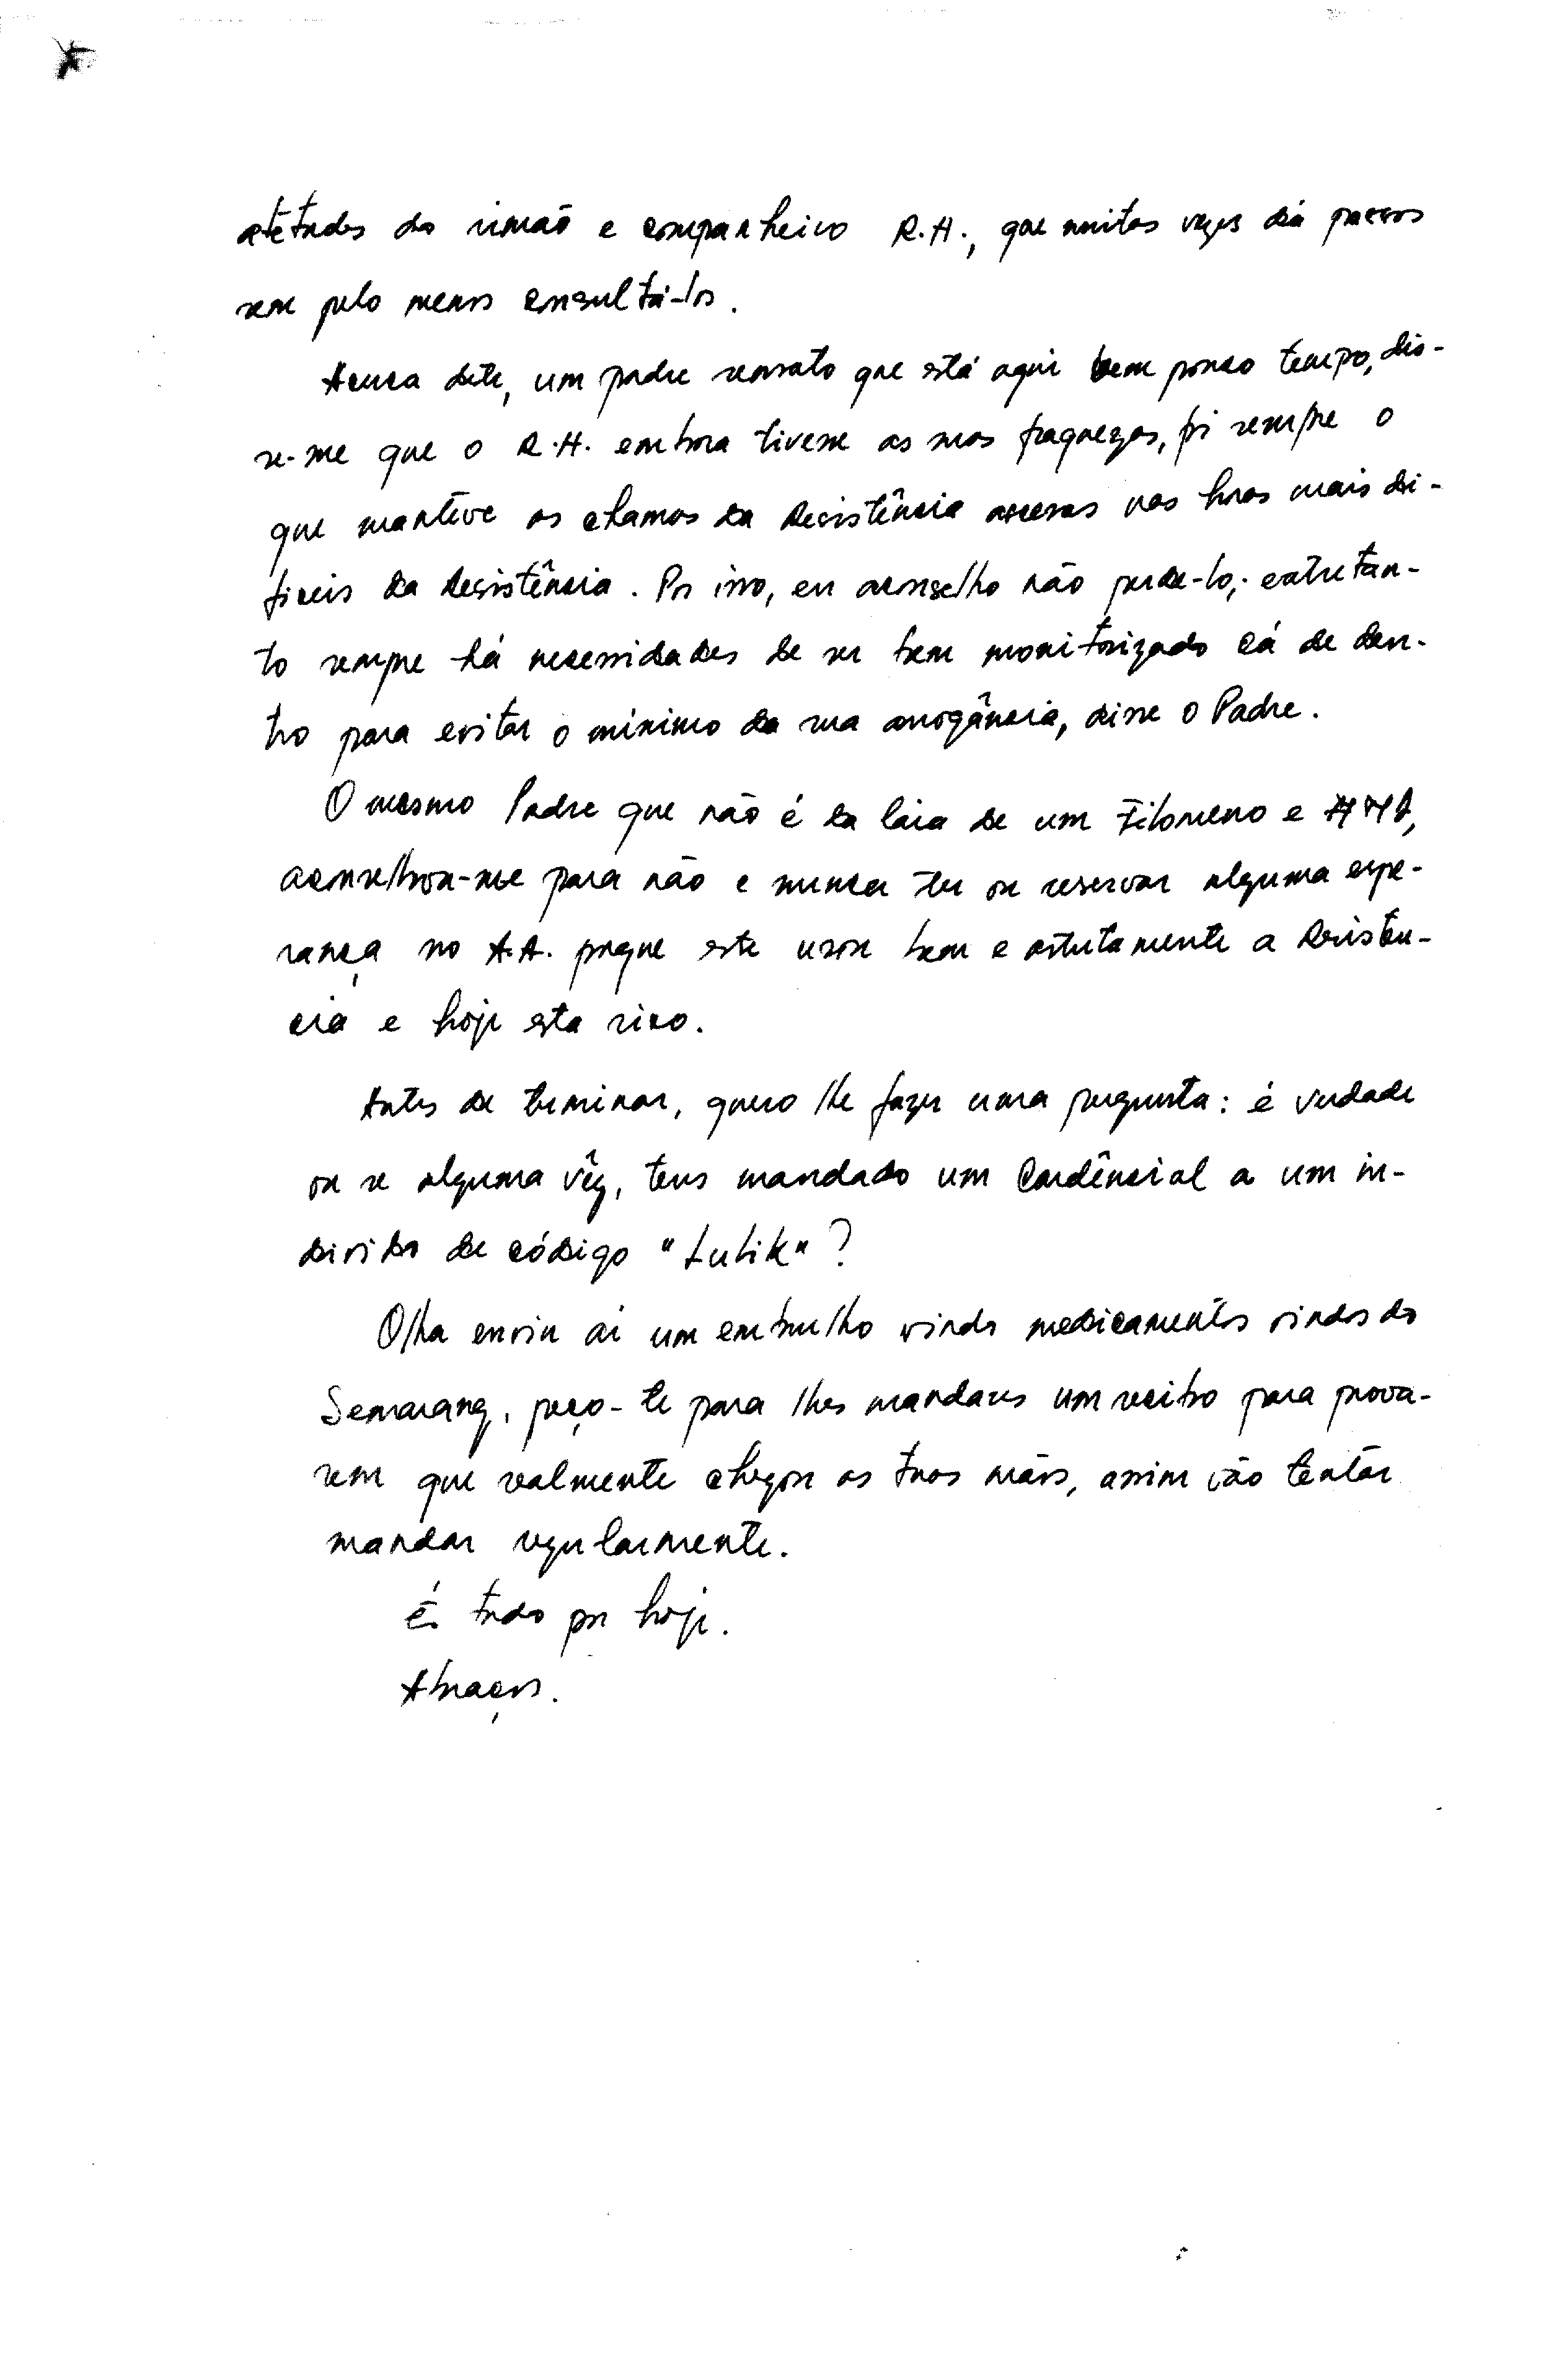 atêtudes do irmão e companheiro R.H., que muitas vezes dá passos
sem pelo menos consultá-los.
Acerca dele, um padre sensato que está aqui bem pouco tempo, dis-
se-me que o R.H. embora tivesse as suas fraquezas, foi sempre o
que manteve as chamas da Resistência acesas nas horas mais di-
ficeis da Resistência. Por isso, eu aconselho não perde-lo; entretan-
to sempre há necessidades de ser bem monitorizado cá de den-
tro para evitar o minimo da sua arrogância, disse o Padre.
O mesmo Padre que não é da laia de um Filomeno e
aconselhou-me para não e nunca ter ou reservar alguma espe-
rança no A.A. porque este usou bem e astutamente a Resistên-
cia e hoje esta rico.
Antes de terminar, quero lhe fazer uma pergunta: é verdade
ou se alguma vêz, tens mandado um Cardêncial a um in-
divido de código "Lulik"?
Olha envio aí um embrulho vindo medicamentos vindos do
Semarang, peço-te para lhes mandares um recibo para prova-
rem que realmente chegou as tuas mãos, assim vão tentar
mandar regularmente.
É tudo por hoje.
Abraços.